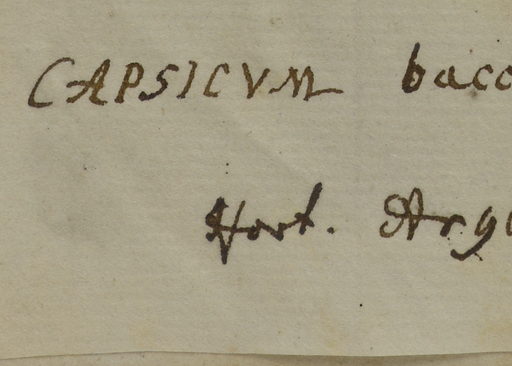 CAPSICVM bacc
Hort. Arg